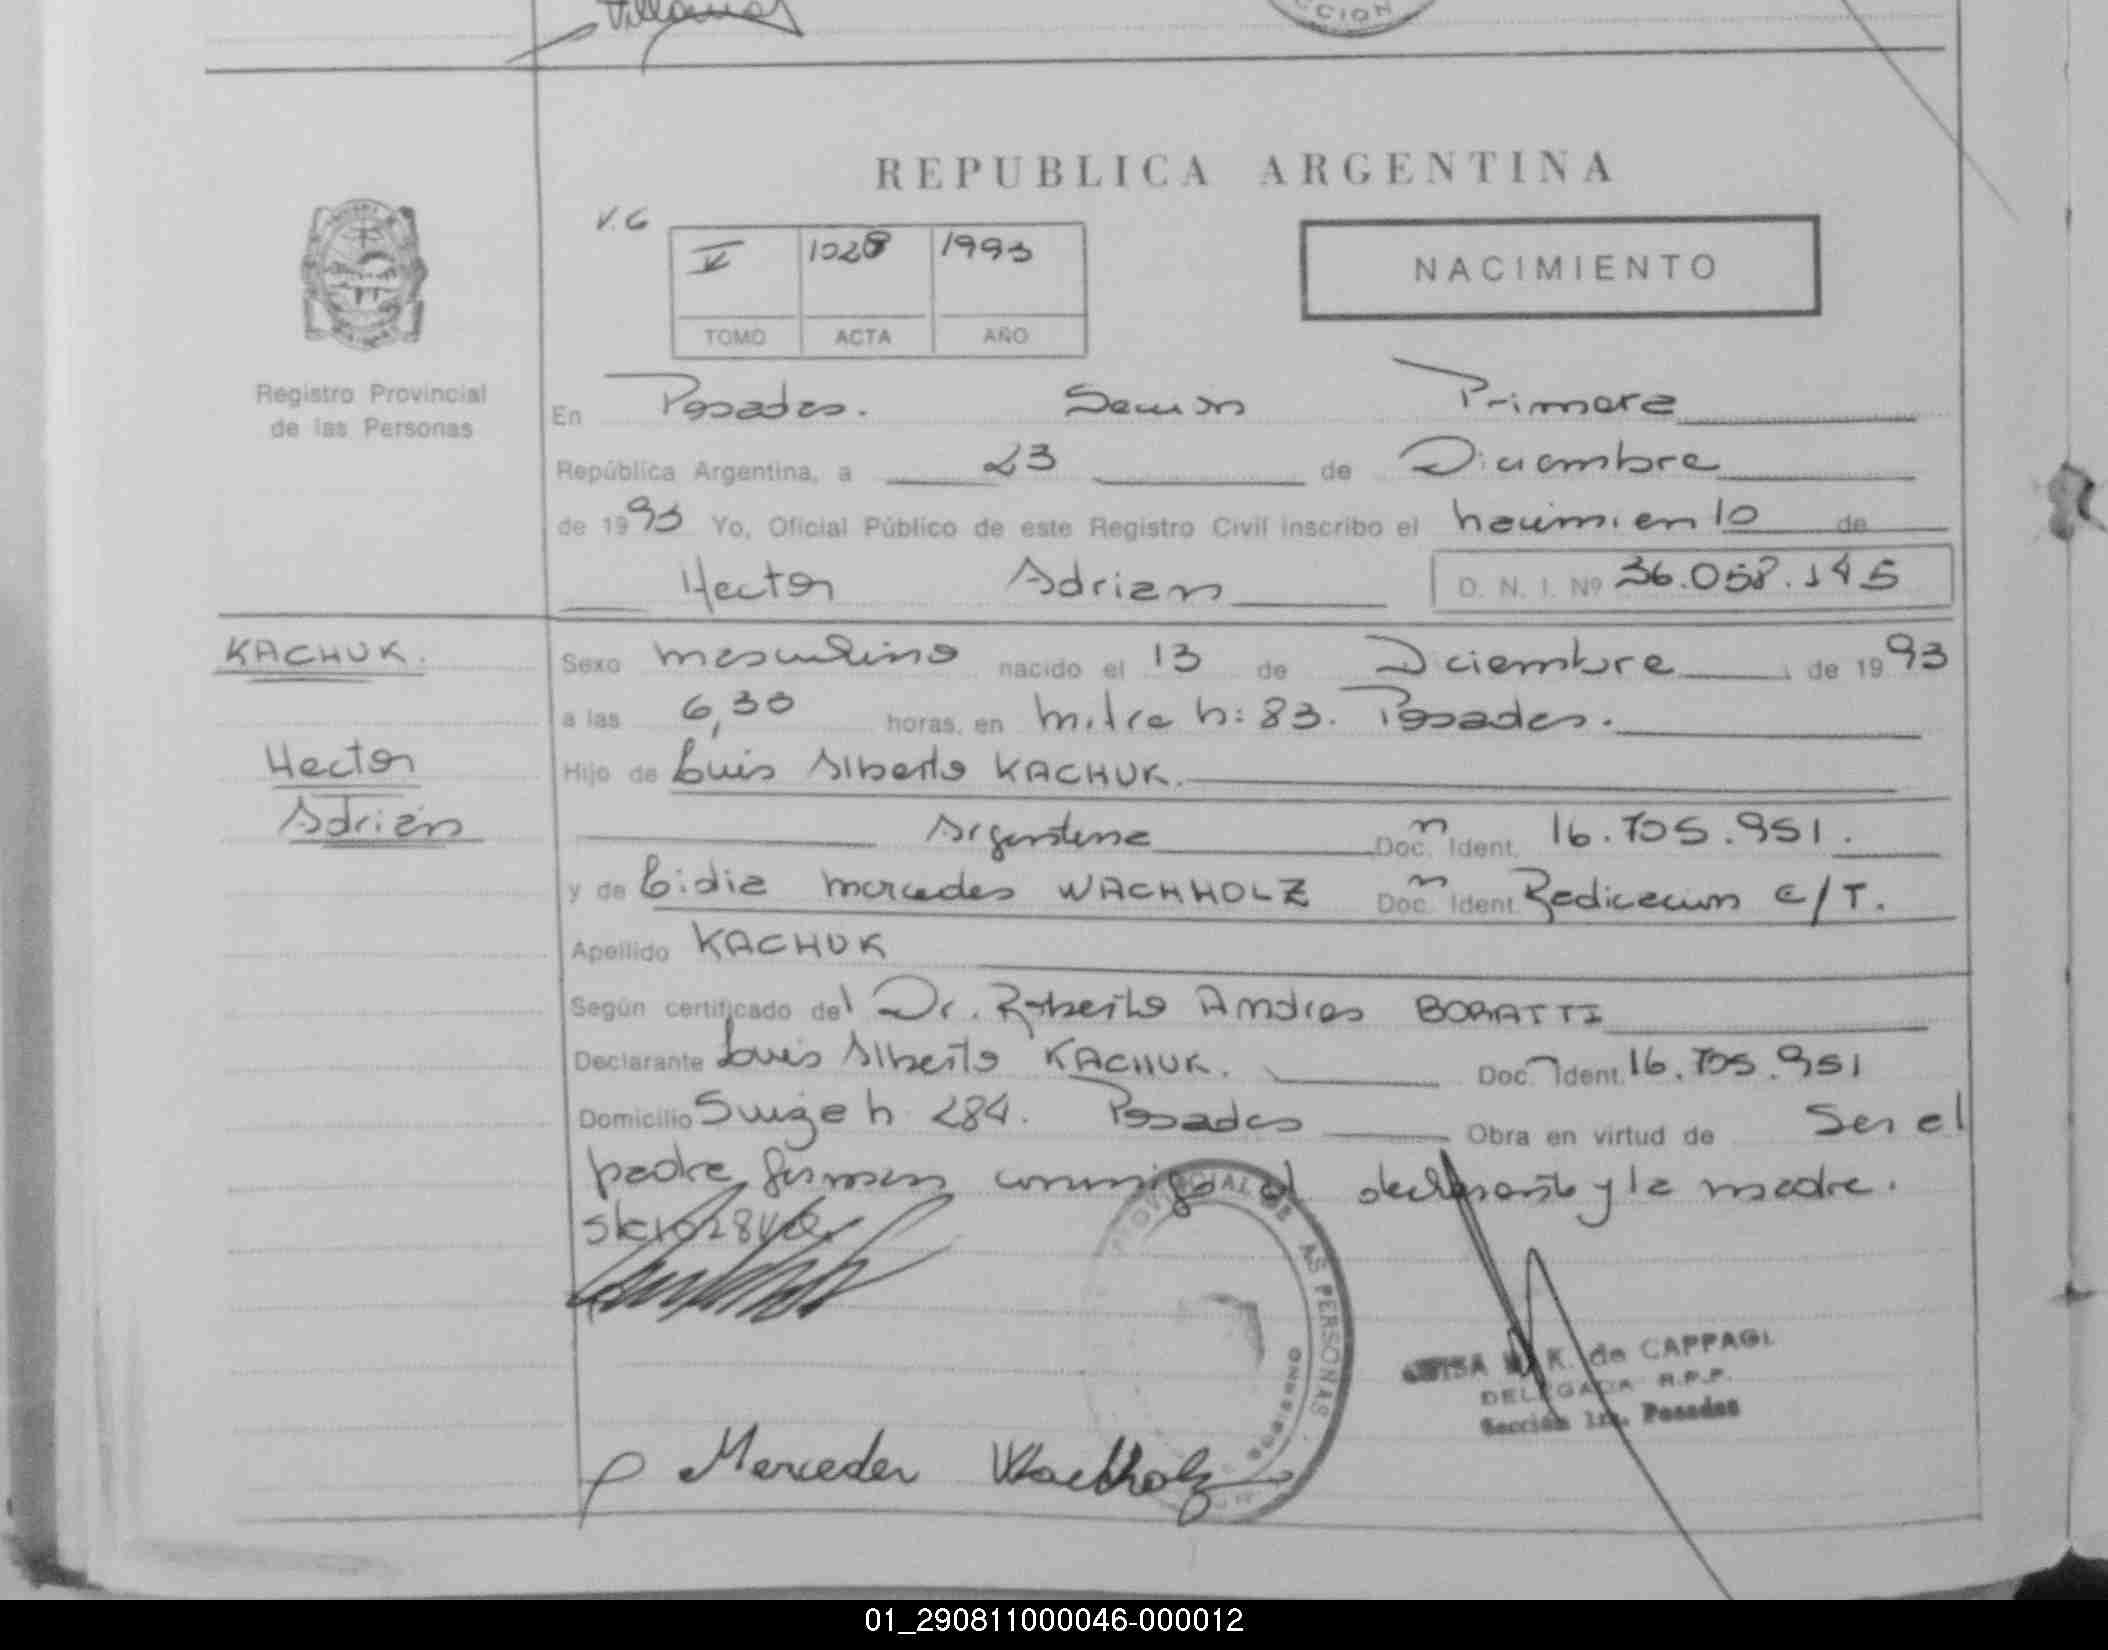 Villanueva
CCION
REPUBLICA ARGENTINA
V.G
V 1028 1993
TOMO ACTA AÑO
NACIMIENTO
Registro Provincial
de las Personas
En Posadas. Sección Primera
República Argentina, a 23 de Diciembre
de 1993 Yo, Oficial Público de este Registro Civil inscribo el nacimiento de
Hector Adrian D. N. I. Nº 36.058.145
KACHUK.
Hector
Adrián
Sexo masculino nacido el 13 de Diciembre de 1993
a las 6,30 horas, en Mitre n: 83. Posadas.
Hijo de Luis Alberto KACHUK.
Argentina Doc. Ident. 16.705.951.
y de Lidia Mercedes WACHHOLZ Doc. Ident. Radicacion e/T.
Apellido KACHUK
Según certificado del Dr. Roberto Andres BORATTI
Declarante Luis Alberto KACHUK. Doc. Ident. 16.705.951
Domicilio Suiza n 284. Posadas Obra en virtud de Ser el
padre firman conmigo el declarante y la madre.
s/c 1028 Vale
PROVINCIAL DE LAS PERSONAS
K. de CAPPAGL
DELEGADA R.P.P.
Sección 1ra. Posadas
Mercedes Wachholz
01_290811000046-000012